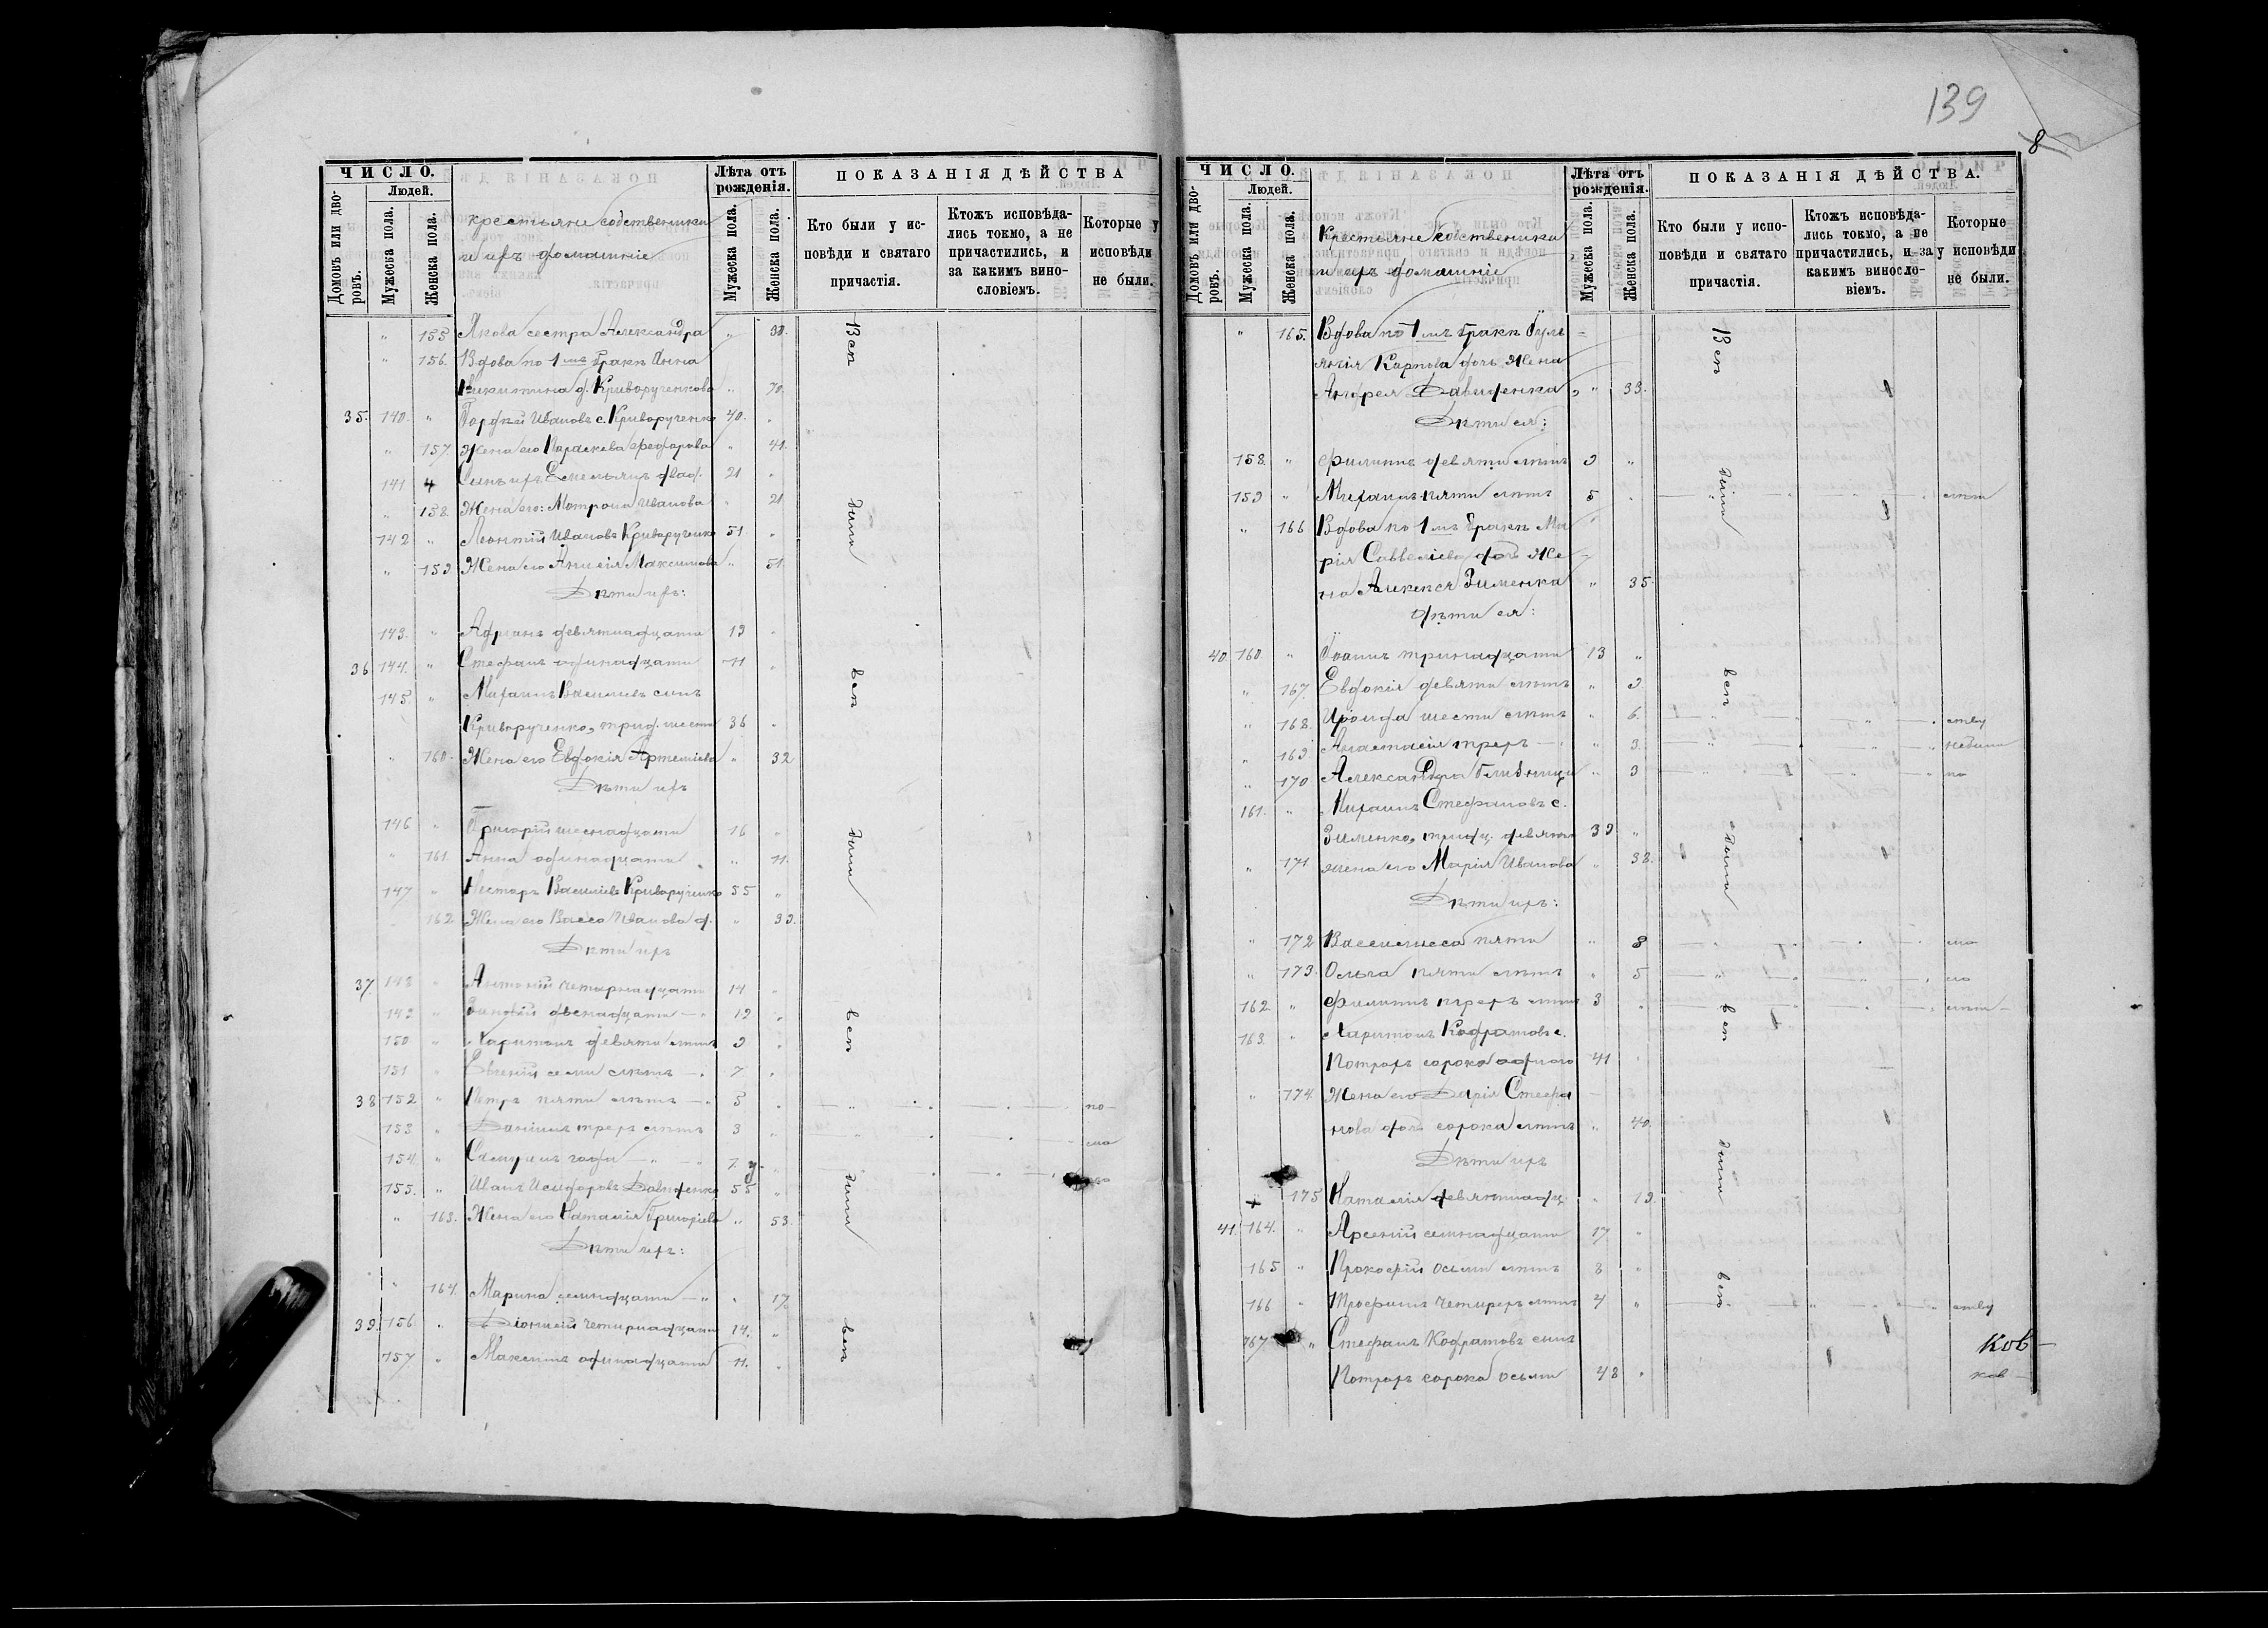 139
8
ЧИСЛО. Лѣта отъ рожденія. ПОКАЗАНІЯ ДѢЙСТВА
Домовъ или дворовъ. Людей. Мужеска пола. Женска пола.
крестьяне собственники
и ихъ домашніе
Мужеска пола. Женска пола.
Кто были у исповѣди и святаго причастія.
Ктожъ исповѣдались токмо, а не причастились, и за какимъ винословіемъ.
Которые у исповѣди не были.
" 155 Якова сестра Александра "
" 156. Вдова по 1мъ бракѣ Анна
Никитина д. Криворученкова " 70.
35. 140. " Гордѣй Ивановъ с. Криворученко 40. "
" 157 Жена его Параскева Феодорова " 41.
141 Сынъ ихъ Емельянъ двад. 21 "
" 158. Жена его: Мотрона Иванова " 21
142 " Леонтій Ивановъ Криворученко 51 "
" 159 Жена его Анисія Максимова " 51.
Дѣти ихъ:
143. " Адріанъ девятнадцати 19 "
36 144. " Стефанъ одинадцати 11 "
145. " Михаилъ Васильевъ сынъ
Криворученко, трид. шести 36 "
" 160. Жена его Евдокія Артеміева " 32
Дѣти ихъ
146 " Григорій шеснадцати 16 "
" 161. Анна одинадцати " 11.
147 " Несторъ Василіевъ Криворученко 55 "
162 Жена его Васса Иванова д. "
Дѣти ихъ
37. 148 " Антоній четырнадцати 14 "
149 " двенадцати 12 "
150 " Харитонъ девяти лѣтъ 9 "
151 " Евгеній семи лѣтъ 7 "
38 152 " Петръ пяти лѣтъ 5 "
153 " Даніилъ трехъ лѣтъ 3 "
154. " Самуилъ года
155. " Иванъ Исидоровъ Давиденко 55 "
" 163. Жена его Наталія Григоріева " 53.
Дѣти ихъ:
" 164. Марина семнадцати " 17
39. 156. " Діонисій четырнадцати 14. "
157. " Максимъ одинадцати 11. "
Всѣ
были
всѣ
были
всѣ
были
всѣ
ЧИСЛО. Лѣта отъ рожденія. ПОКАЗАНІЯ ДѢЙСТВА.
Домовъ или дворовъ. Людей. Мужеска пола. Женска пола.
Крестьяне собственники
и ихъ домашніе
Мужеска пола. Женска пола.
Кто были у исповѣди и святаго причастія.
Ктожъ исповѣдались токмо, а не причастились, и за какимъ винословіемъ.
Которые у исповѣди не были.
" 165. Вдова по 1мъ бракѣ Іулі
янія Карпова дочь Жена
Андрея Давиденка " 33.
Дѣти ея:
158. " Филиппъ девяти лѣтъ 9 "
159 " Михаилъ пяти лѣтъ 5 "
" 166 Вдова по 1мъ бракѣ Ма
рія Савеліева дочь Же
на Алексѣя Зименка " 35.
дѣти ея:
40. 160 " Іоаннъ тринадцати 13 "
" 167. Евдокія девяти лѣтъ " 9
" 168. шести лѣтъ " 6.
" 169 Анастасія трехъ " 3.
" 170 Александра близнецы " 3
161. " Михаилъ Стефановъ с.
Зименко, тридц. девять 39 "
" 171 жена его Марія Иванова " 38.
Дѣти ихъ:
" 172 Василисса пяти "
" 173. Ольга пяти лѣтъ " 5
162. " Филиппъ трехъ лѣтъ 3 "
163. " Харитонъ Кодратовъ с.
Потрохъ сорока одного 41
" 174. Жена его Дарія Стефа
нова дочь сорока лѣтъ " 40.
Дѣти ихъ
+ 175 Наталія девятнадц. " 19.
41. 164. " Арсеній семнадцати 17 "
165 " Прокофій осьми лѣтъ 8 "
166 " Трофимъ четырехъ лѣтъ 4 "
167 " Стефанъ Кодратовъ сынъ
Потрохъ сорока осьми 48 "
Всѣ
были
всѣ
были
всѣ
были
всѣ
ков-
ков-